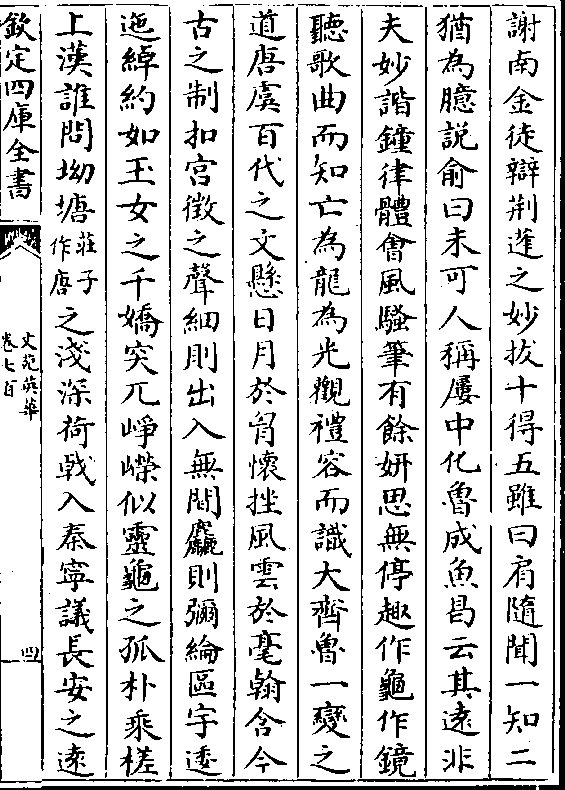 謝南金徒辯荆蓬之妙拔十得五雖曰肩隨聞一知二
猶為臆説俞曰未可人稱屢中化魯成魚曷云其遠非
夫妙諧鐘律體會風騷筆有餘妍思無停趣作龜作鏡
聽歌曲而知亡為龍為光觀禮容而識大齊魯一變之
道唐虞百代之文懸日月於胷懷挫風雲於毫翰含今
古之制扣宮徵之聲細則出入無間麤則彌綸區宇逶
迤綽約如玉女之千嬌突兀崢嶸似靈龜之孤朴乘槎
上漢誰問坳塘莊子作唐之淺深荷戟入秦寧議長安之遠
欽定四庫全書
文苑英華
卷七百
四